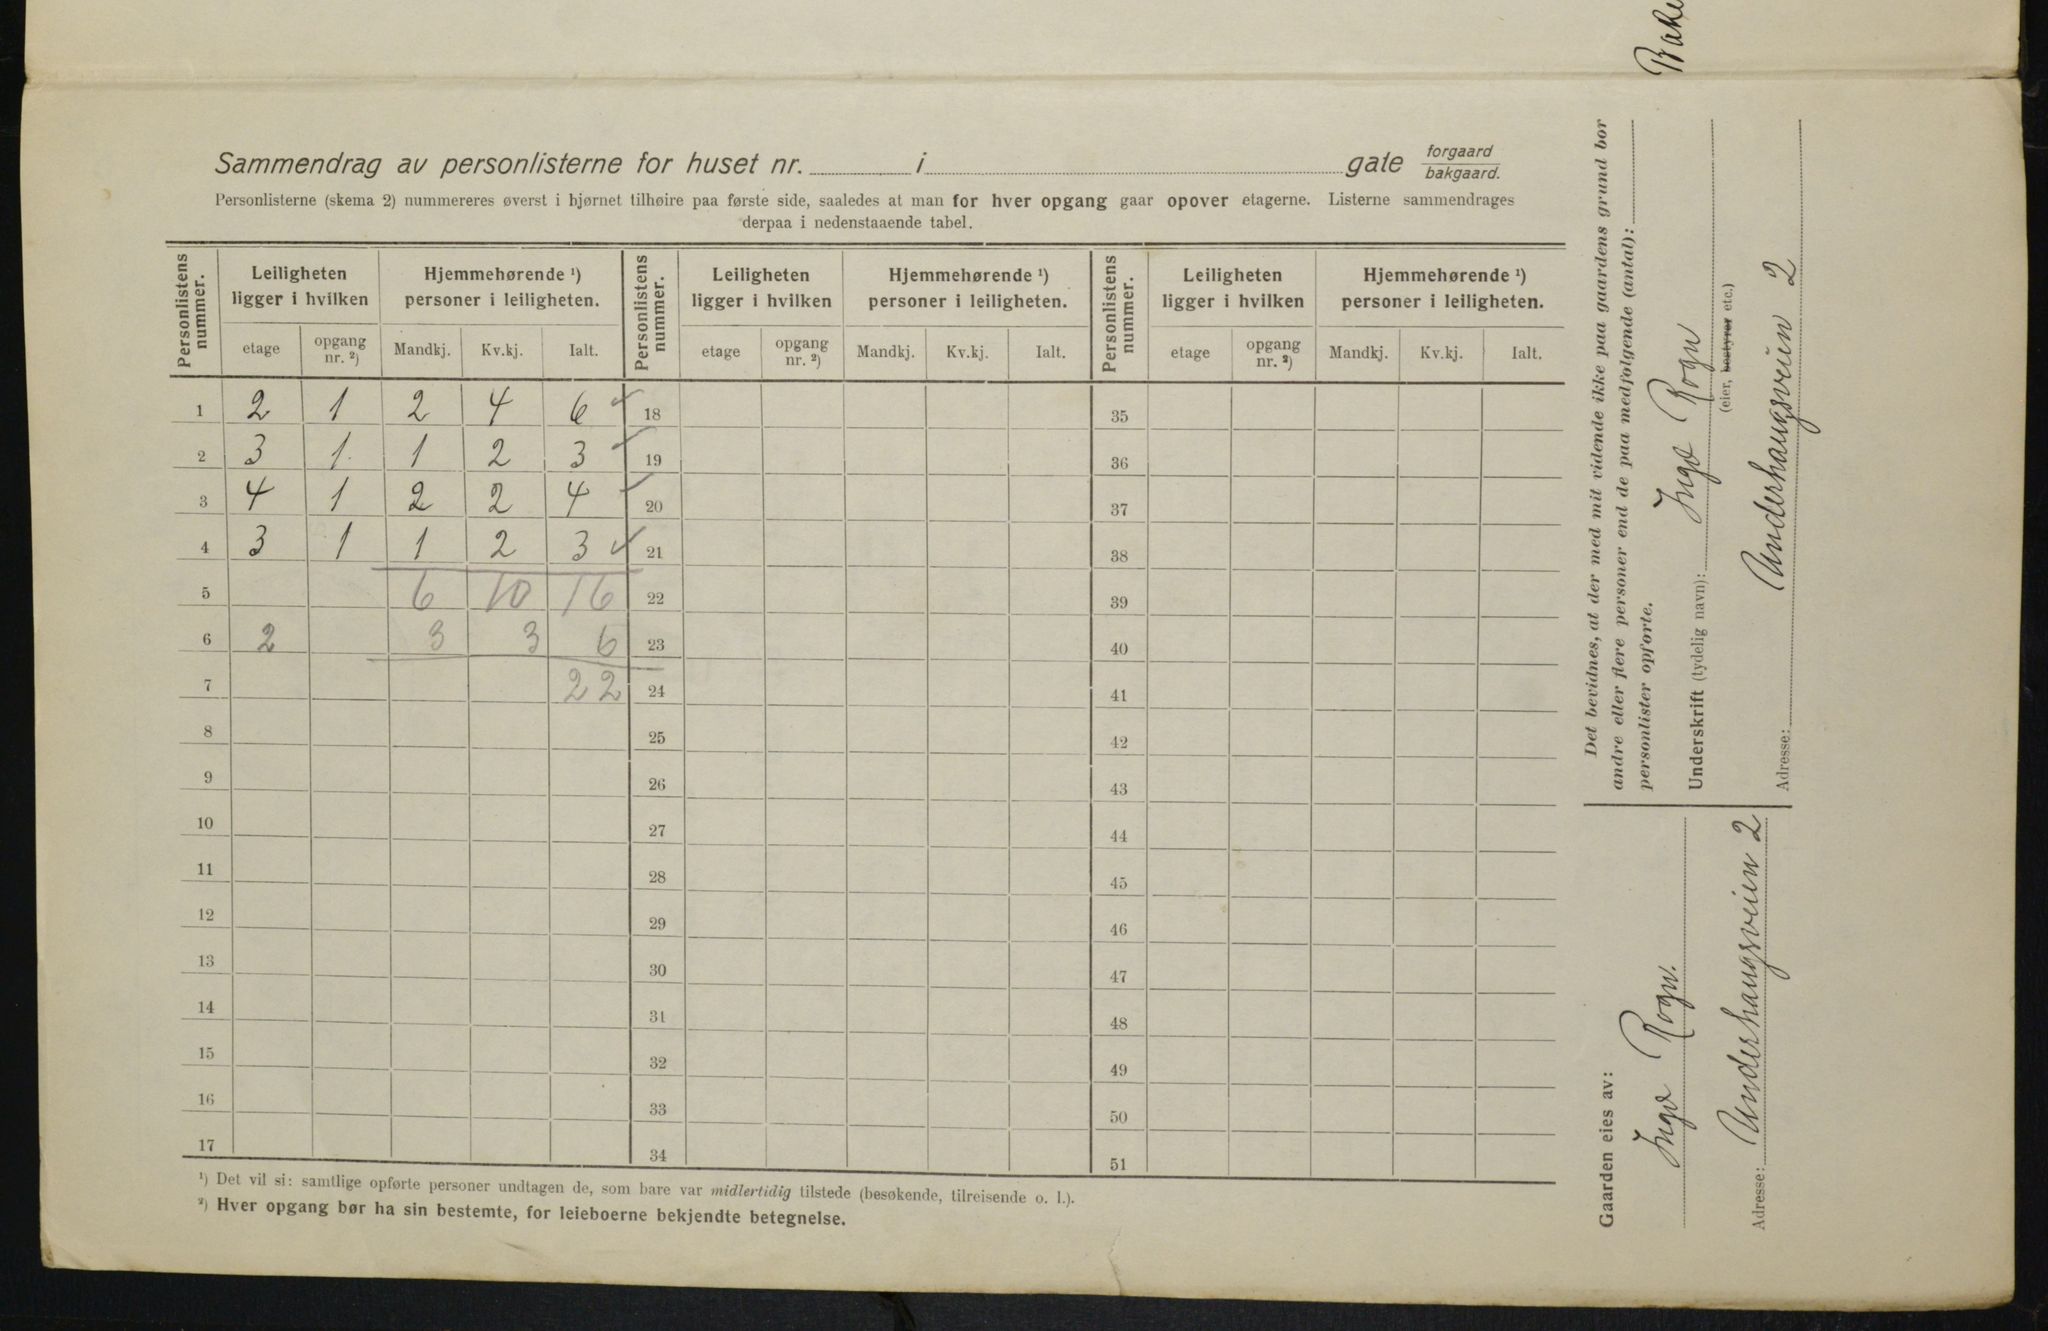 Sammendrag av personlisterne for huset nr. i gate forgaard bakgaard.
Personlisterne (skema 2) nummereres øverst i hjørnet tilhøire paa første side, saaledes at man for hver opgang gaar opover etagerne. Listerne sammendrages
derpaa i nedenstaaende tabel.
Personlistens nummer. Leiligheten ligger i hvilken Hjemmehørende ¹) personer i leiligheten. Personlistens nummer. Leiligheten ligger i hvilken Hjemmehørende ¹) personer i leiligheten. Personlistens nummer. Leiligheten ligger i hvilken Hjemmehørende ¹) personer i leiligheten.
etage opgang nr. ²) Mandkj. Kv.kj. Ialt. etage opgang nr. ²) Mandkj. Kv.kj. Ialt. etage opgang nr. ²) Mandkj. Kv.kj. Ialt.
1 2 1 2 4 6 ✓ 18 35
2 3 1 1 2 3 ✓ 19 36
3 4 1 2 2 4 ✓ 20 37
4 3 1 1 2 3 ✓ 21 38
5 6 10 16 22 39
6 2 3 3 6 23 40
7 22 24 41
8 25 42
9 26 43
10 27 44
11 28 45
12 29 46
13 30 47
14 31 48
15 32 49
16 33 50
17 34 51
¹) Det vil si: samtlige opførte personer undtagen de, som bare var midlertidig tilstede (besøkende, tilreisende o. l.).
²) Hver opgang bør ha sin bestemte, for leieboerne bekjendte betegnelse.
Det bevidnes, at der med mit vidende ikke paa gaardens grund bor
andre eller flere personer end de paa medfølgende (antal):
personlister opførte.
Underskrift (tydelig navn): Inga Rogn
(eier, bestyrer etc.)
Adresse: Underhaugsveien 2
Gaarden eies av:
Inga Rogn.
Adresse: Underhaugsveien 2